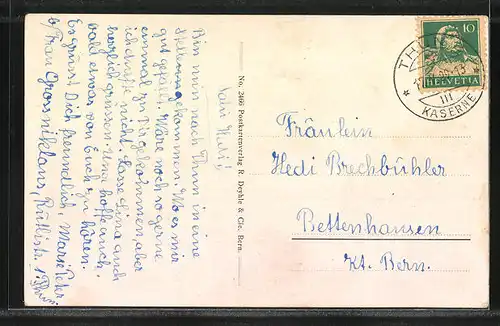 Liebe Hedi!
Bin nun nach Thun in eine
Stellung gekommen. Wo es mir
gut gefällt. Wäre noch so gerne
einmal zu Dir gekommen, aber
ich durfte nicht. Lasse Lina auch
herzlich grüssen. Und hoffe auch
bald etwas von Euch zu hören.
Es grüsst Dich freundlich, Marie Peter
b/ Frau Grossniklaus, Rütlistr. 1. Thun.
No. 2406 Postkartenverlag R. Deyhle & Cie. Bern.
10
HELVETIA
III
KASERNE
Fräulein
Hedi Brechbühler
Bettenhausen
Kt. Bern.